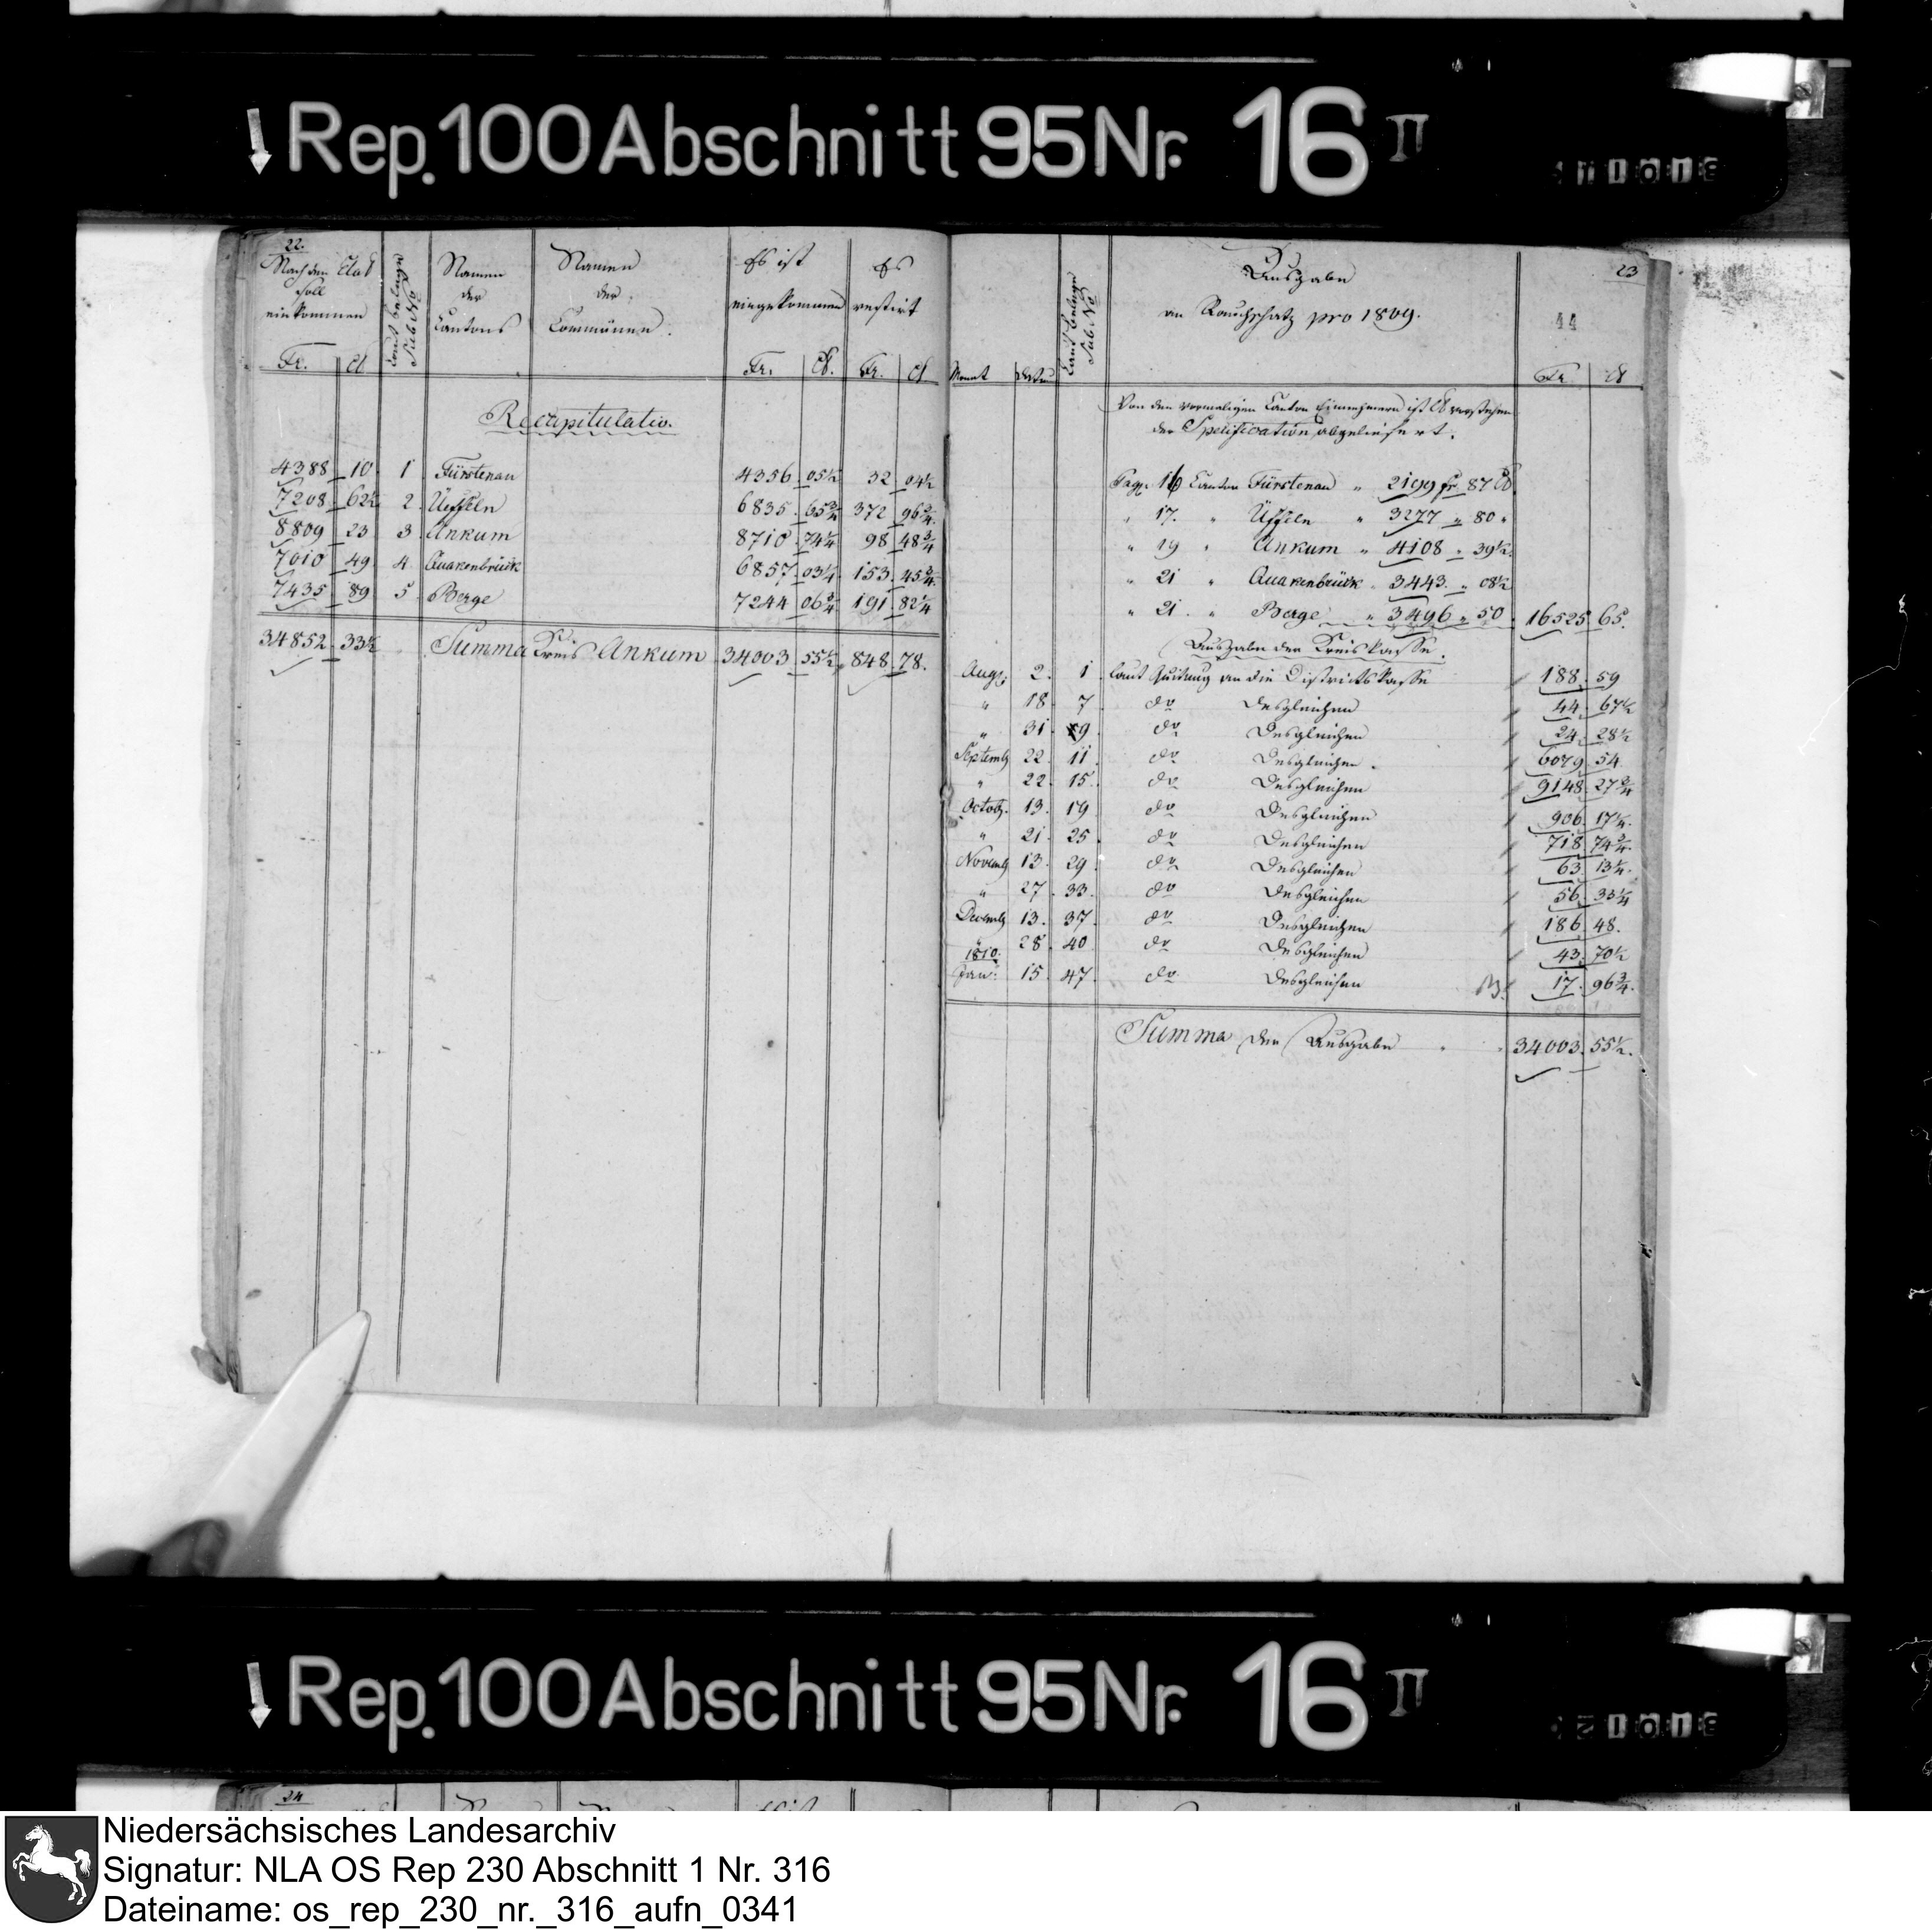 Rep. 100 Abschnitt 95 Nr. 16 II
22.
Nach den Etat soll einkommen
Fr. Ct
Laut belege Sub No
Namen der Cantons
Namen der Communen.
Es ist eingekommen
Fr. Ct.
Es restirt
Fr. Ct
Recapitulatio.
4388 10 1 Fürstenau 4356 05½ 32 04½
7208 62½ 2. Üffeln 6835 65¾ 372 96¾
8809 23 3 Ankum 8710 74¼ 98 48¾
7010 49 4 Quakenbrück 6857 03¼ 153 45¾
7435 89 5 Berge 7244 06¾ 191 82¼
34852 33½ Summa Kreis Ankum 34003 55½ 848 78.
23
Monat Datum
Laut belege Sub. No
Ausgabe
an Rauchschatz pro 1809.
44
Fr. Ct
Von den vormaligen Canton Einnehmern ist
der Specification abgeliefert.
Pag. 16 Canton Fürstenau " 2199 fr 87 Ct
" 17. " Üffeln " 3277 " 80 "
" 19 " Ankum " 4108 " 39½
" 21 " Quakenbrück " 3443 " 08½
" 21 " Berge " 3496 " 50 16525 65.
Ausgabe der Kreiskasse.
Aug. 2. 1 laut Quitung an die Districtskasse 188 59
" 18 7 do Desgleichen 44 67½
" 31 9 do Desgleichen 24 28½
Septemb 22 11 do Desgleichen 6079 54
" 22 15 do Desgleichen 9148 27¾
Octob. 13 19 do Desgleichen 906 17¼
" 21 25 do Desgleichen 718 74¾
Novemb 13 29 do Desgleichen 63 13¼
" 27 33 do Desgleichen 56 33¼
Decemb 13. 37 do Desgleichen 186 48.
" 28 40 do Desgleichen 43 70½
1810.
Jan: 15 47 do Desgleichen 17 96¾
Summa der Ausgabe 34003. 55½.
Rep. 100 Abschnitt 95 Nr. 16 II
24
Niedersächsisches Landesarchiv
Signatur: NLA OS Rep 230 Abschnitt 1 Nr. 316
Dateiname: os_rep_230_nr._316_aufn_0341